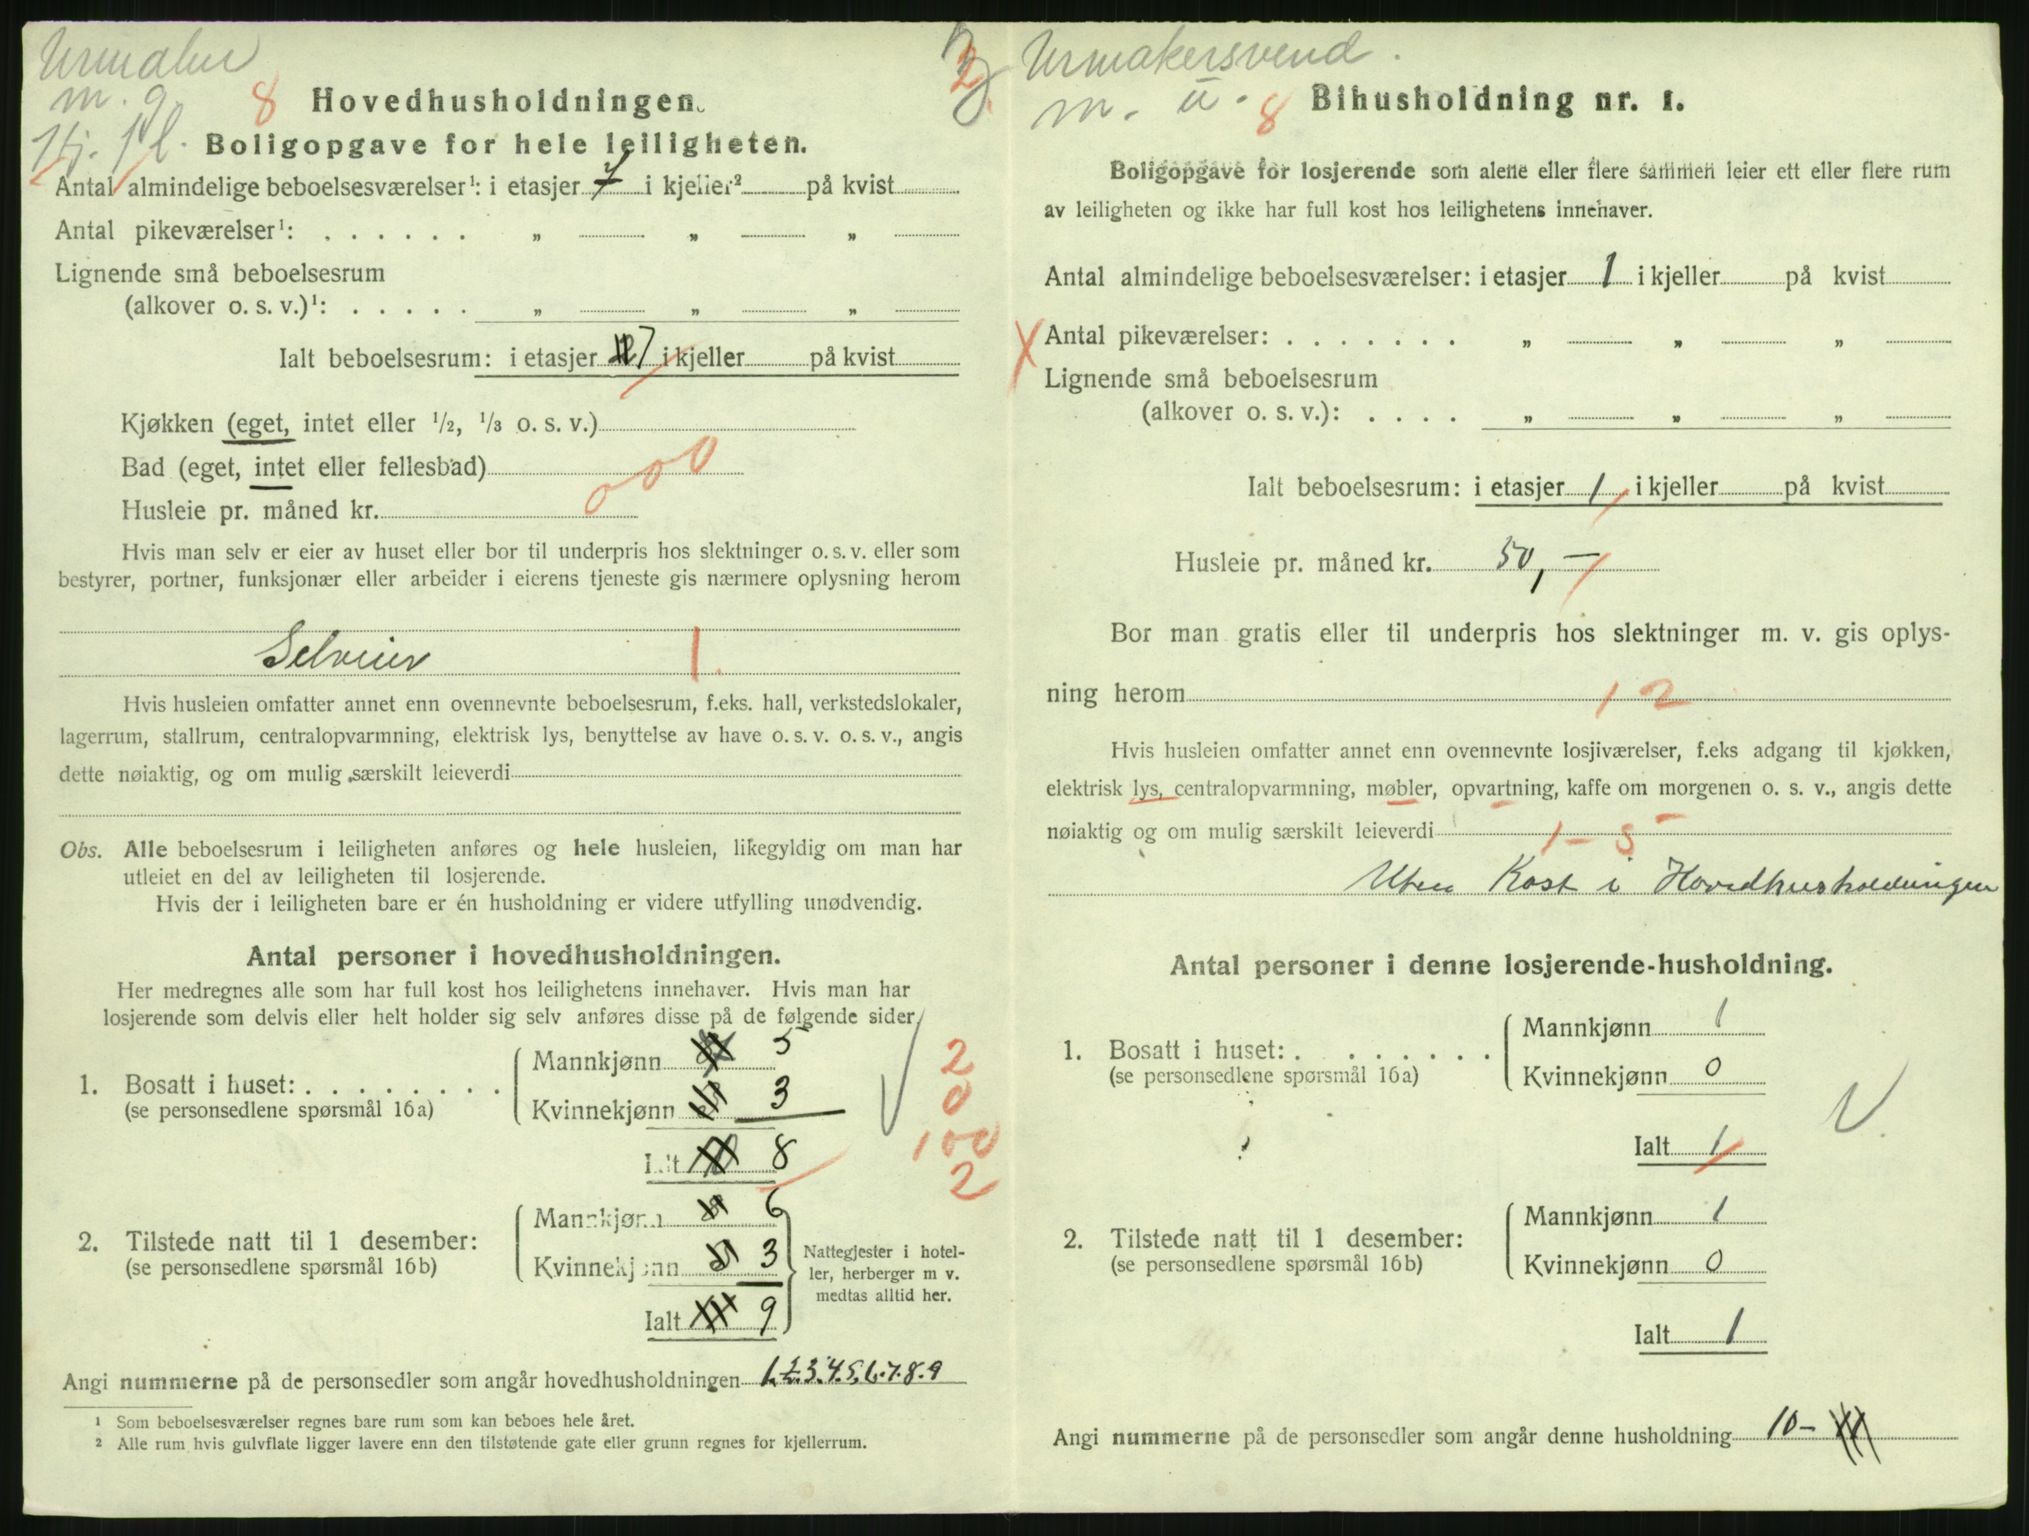 Urmaker
m. g.
8 Hovedhusholdningen.
Hj. pl.
Boligopgave for hele leiligheten.
Antal almindelige beboelsesværelser¹: i etasjer 7 i kjeller² på kvist
Antal pikeværelser¹: . . . . . . „ „ „
Lignende små beboelsesrum
(alkover o. s. v.)¹: . . . . . „ „ „
Ialt beboelsesrum: i etasjer 7 i kjeller på kvist
Kjøkken (eget, intet eller 1/2, 1/3 o. s. v.)
Bad (eget, intet eller fellesbad)
000
Husleie pr. måned kr.
Hvis man selv er eier av huset eller bor til underpris hos slektninger o. s. v. eller som
bestyrer, portner, funksjonær eller arbeider i eierens tjeneste gis nærmere oplysning herom
Selveier 1.
Hvis husleien omfatter annet enn ovennevnte beboelsesrum, f.eks. hall, verkstedslokaler,
lagerrum, stallrum, centralopvarmning, elektrisk lys, benyttelse av have o. s. v. o. s. v., angis
dette nøiaktig, og om mulig særskilt leieverdi
Obs. Alle beboelsesrum i leiligheten anføres og hele husleien, likegyldig om man har
utleiet en del av leiligheten til losjerende.
Hvis der i leiligheten bare er én husholdning er videre utfylling unødvendig.
Antal personer i hovedhusholdningen.
Her medregnes alle som har full kost hos leilighetens innehaver. Hvis man har
losjerende som delvis eller helt holder sig selv anføres disse på de følgende sider.
Mannkjønn 5
2
1. Bosatt i huset: . . . . . . . .
(se personsedlene spørsmål 16a)
Kvinnekjønn 3
0
Ialt 8
100
2
Mannkjønn 6
2. Tilstede natt til 1 desember:
(se personsedlene spørsmål 16b)
Kvinnekjønn 3
Ialt 9
Nattegjester i hotel-
ler, herberger m v.
medtas alltid her.
Angi nummerne på de personsedler som angår hovedhusholdningen 1.2.3.4.5.6.7.8.9
¹ Som beboelsesværelser regnes bare rum som kan beboes hele året.
² Alle rum hvis gulvflate ligger lavere enn den tilstøtende gate eller grunn regnes for kjellerrum.
2.
Urmakersvend.
m. u. 8 Bihusholdning nr. 1.
Boligopgave for losjerende som alene eller flere sammen leier ett eller flere rum
av leiligheten og ikke har full kost hos leilighetens innehaver.
Antal almindelige beboelsesværelser: i etasjer 1 i kjeller på kvist
X Antal pikeværelser: . . . . . . . „ „ „
Lignende små beboelsesrum
(alkover o. s. v.): . . . . „ „ „
Ialt beboelsesrum: i etasjer 1 i kjeller på kvist
Husleie pr. måned kr. 50,—
Bor man gratis eller til underpris hos slektninger m. v. gis oplys-
ning herom 12
Hvis husleien omfatter annet enn ovennevnte losjiværelser, f.eks adgang til kjøkken,
elektrisk lys, centralopvarmning, møbler, opvartning, kaffe om morgenen o. s. v., angis dette
nøiaktig og om mulig særskilt leieverdi 1-5
Uten Kost i Hovedhusholdningen
Antal personer i denne losjerende-husholdning.
Mannkjønn 1
1. Bosatt i huset: . . . . . . .
(se personsedlene spørsmål 16a)
Kvinnekjønn 0
Ialt 1
Mannkjønn 1
2. Tilstede natt til 1 desember:
(se personsedlene spørsmål 16b)
Kvinnekjønn 0
Ialt 1
Angi nummerne på de personsedler som angår denne husholdning 10-